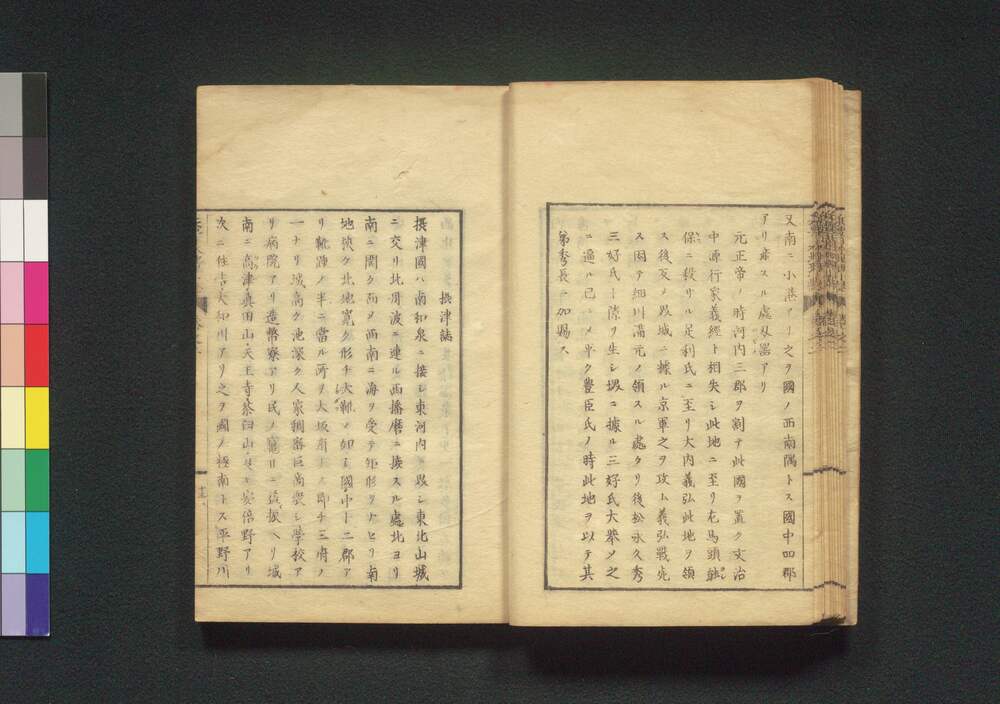 又南ニ小港アリ之ヲ國ノ西南隅トス國中四郡
アリ産スル處刄噐アリ
元正帝ノ時河内三郡ヲ割テ此國ヲ置ク文治
中源行家義經ト相失シ此地ニ至リ右馬頭
保ニ殺サル足利氏ニ至リ大内義弘此地ヲ領
ス後反ノ城ニ據ル京軍之ヲ攻ム義弘戰死
ス因テ細川滿元ノ領スル處タリ後松永久秀
三好氏ト隙ヲ生シ堺ニ據ル三好氏大擧メ之
ニ逼ル已ニメ平ク豐臣氏ノ時此地ヲ以テ其
弟秀長ニ加賜ス
摂津誌
摂津國ハ南和泉ニ接シ東河内ヲ界シ東北山城
ニ交リ北丹波ニ連ル西播磨ニ接スル處北ヨリ
南ニ開ク而メ西南ニ海ヲ受テ矩形リナセリ南
地狹ク北地寛ク形チ大靴ノ如シ國中十二郡ア
リ靴踵ノ半ニ當ル所ヲ大坂府トス即チ三府ノ
一ナリ城高ク池深ク人家稠密巨萬衆シ學校ア
リ病院アリ造幣寮アリ民ノ竈日ニ振ヘリ城
南ニ高津真田山天王寺茶臼山安倍野アリ
次ニ住吉大和川アリ之ヲ國ノ極南トス平野川